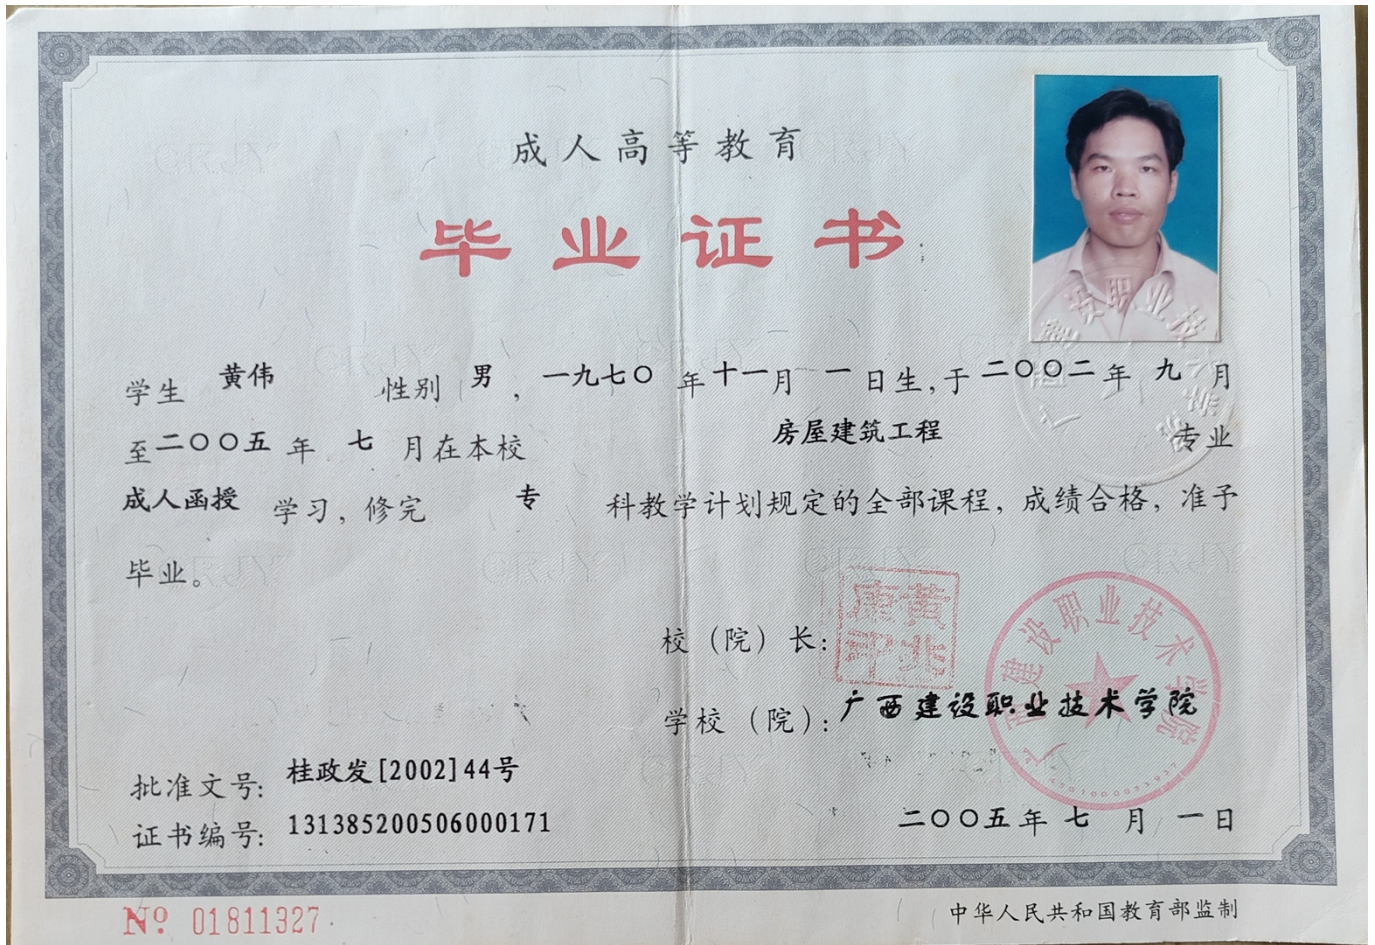 成人高等教育
毕业证书
学生 黄伟 性别 男 , 一九七〇 年 十一 月 一 日生, 于 二〇〇二 年 九 月
至 二〇〇五 年 七 月在本校 房屋建筑工程 专业
成人函授 学习, 修完 专 科教学计划规定的全部课程, 成绩合格, 准予
毕业。
校（院）长: 黄兆康印
学校（院）: 广西建设职业技术学院
广西建设职业技术学院
批准文号: 桂政发[2002]44号
证书编号: 131385200506000171
二〇〇五年 七 月 一日
№ 01811327
中华人民共和国教育部监制